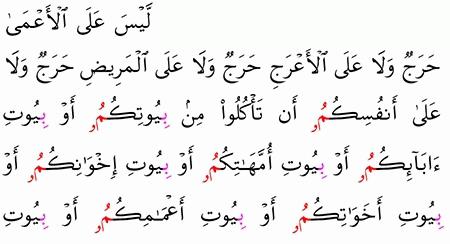 لَّيْسَ عَلَى ٱلْأَعْمَىٰ
حَرَجٌ وَلَا عَلَى ٱلْأَعْرَجِ حَرَجٌ وَلَا عَلَى ٱلْمَرِيضِ حَرَجٌ وَلَا
عَلَىٰ أَنفُسِكُمُۥ أَن تَأْكُلُوا۟ مِنۢ بِيُوتِكُمُۥ أَوْ بِيُوتِ
ءَابَآئِكُمُۥ أَوْ بِيُوتِ أُمَّهَٰتِكُمُۥ أَوْ بِيُوتِ إِخْوَٰنِكُمُۥ أَوْ
بِيُوتِ أَخَوَٰتِكُمُۥ أَوْ بِيُوتِ أَعْمَٰمِكُمُۥ أَوْ بِيُوتِ